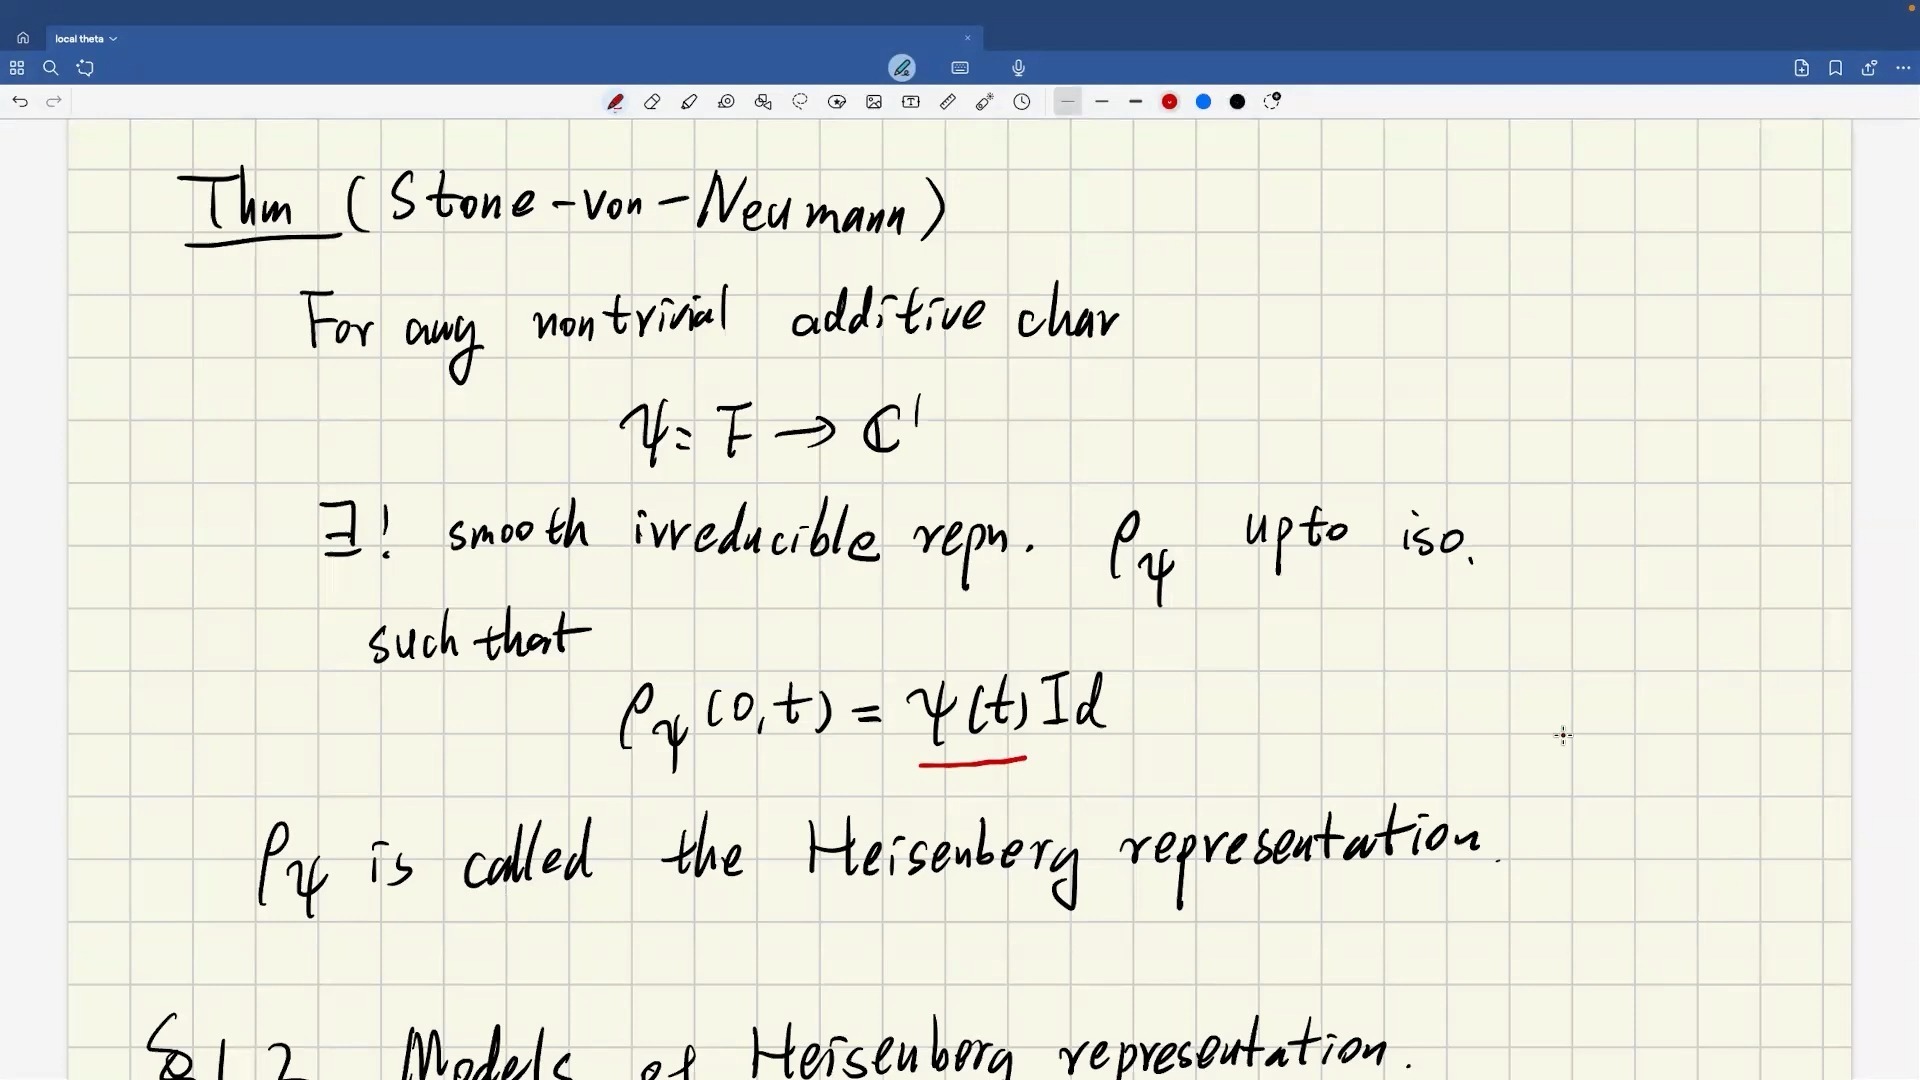 local theta
Thm (Stone-von-Neumann)
For any nontrivial additive char
ψ: F → ℂ¹
∃! smooth irreducible repn. ρ_ψ up to iso.
such that
ρ_ψ(0,t) = ψ(t) Id
ρ_ψ is called the Heisenberg representation.
§1.2 Models of Heisenberg representation.